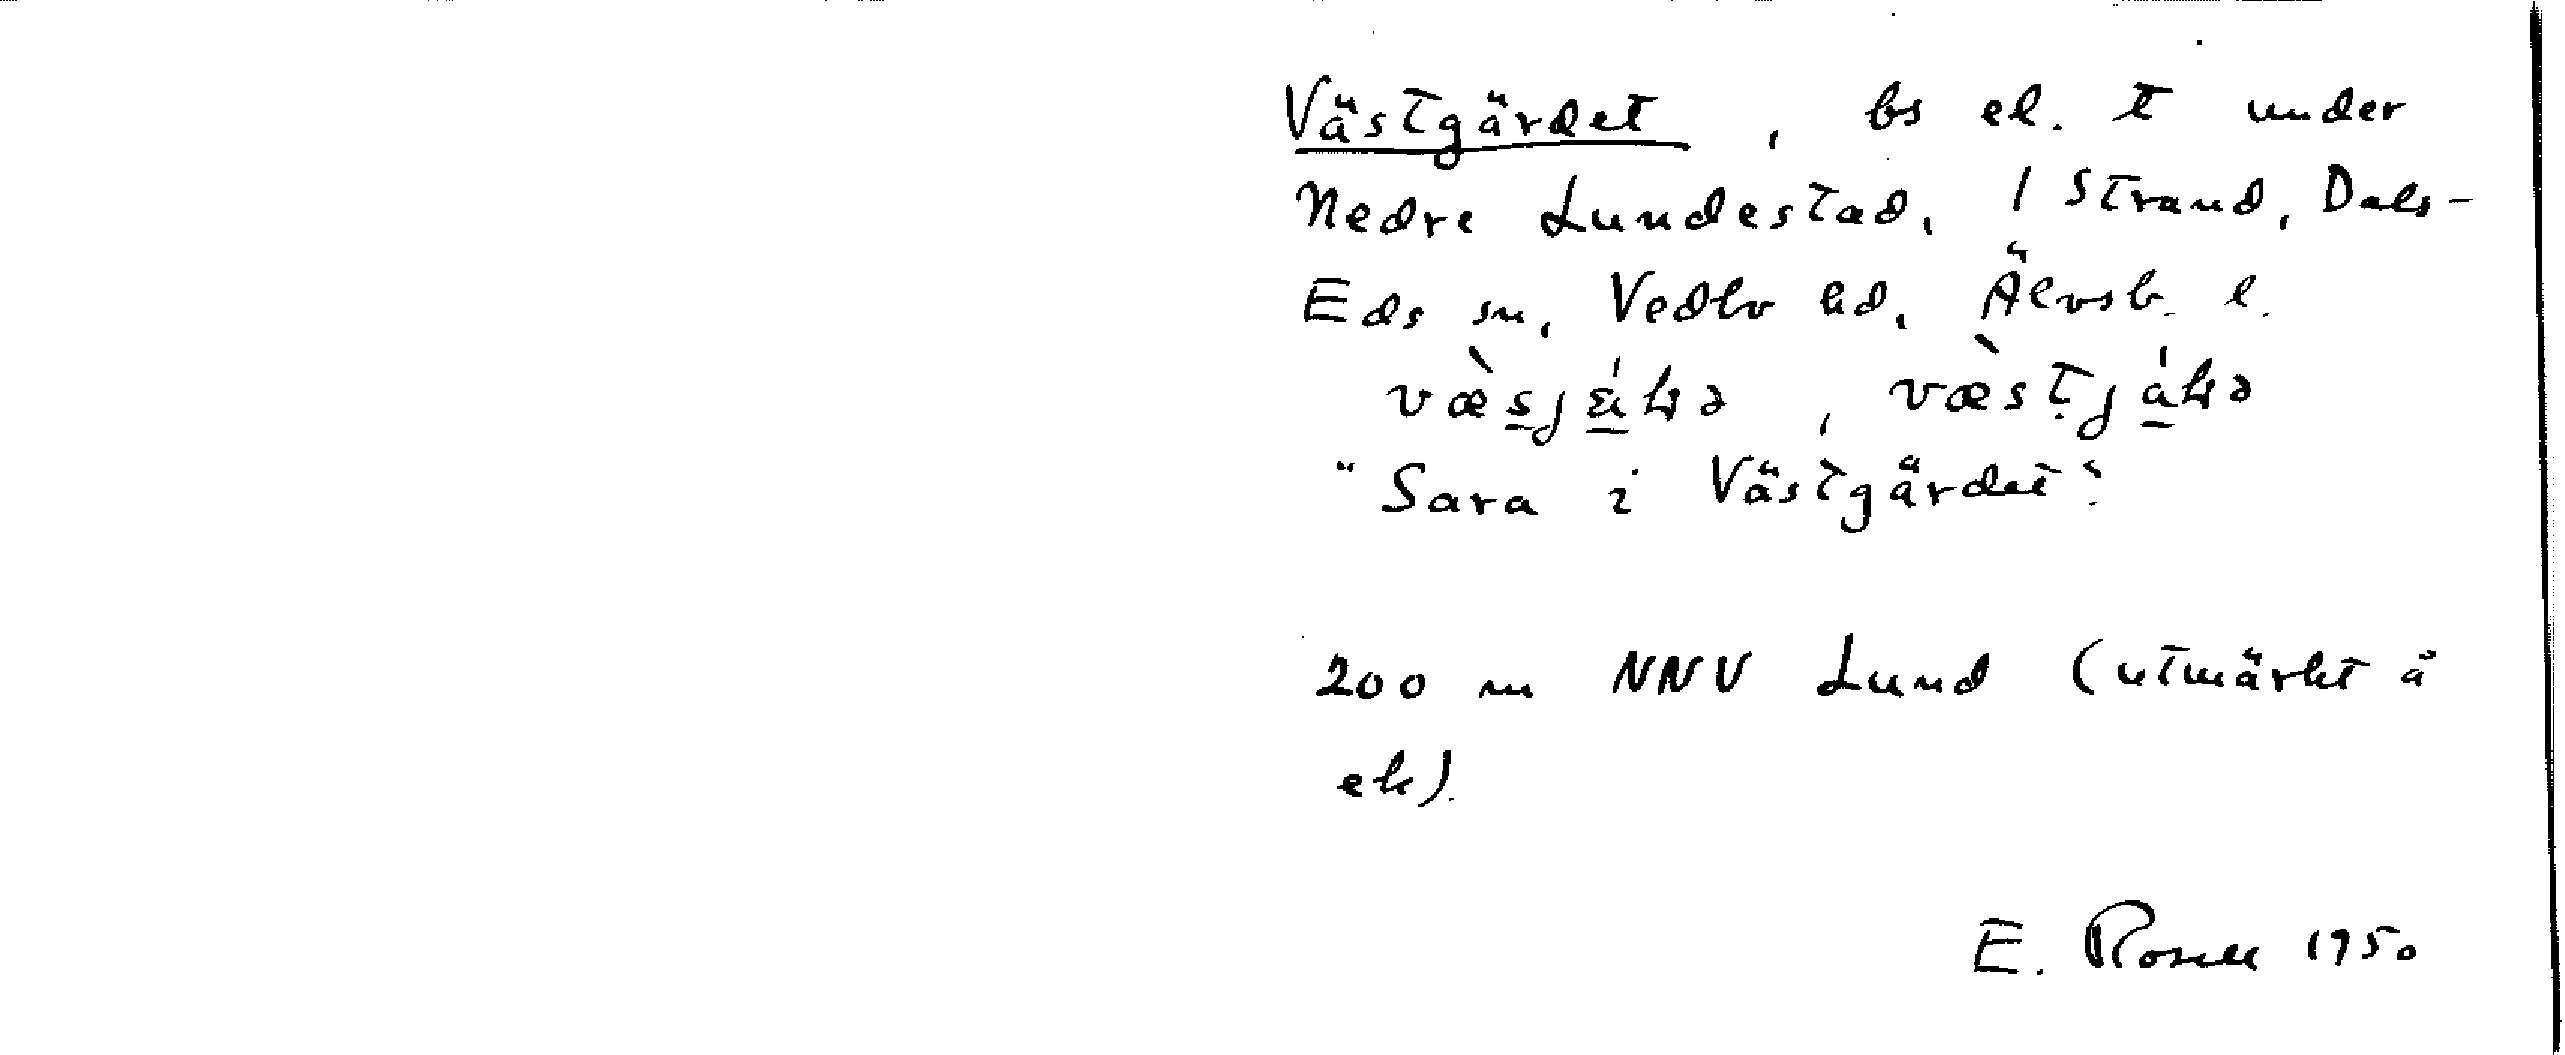 Västgärdet, bs el. t under
Nedre Lundestad, 1 Strand, Dals-
Eds sn, Vedbo hd, Älvsb. l.
"Sara i Västgärdet".
200 m NNV Lund (utmärkt å
ek).
E. Rosell 1950